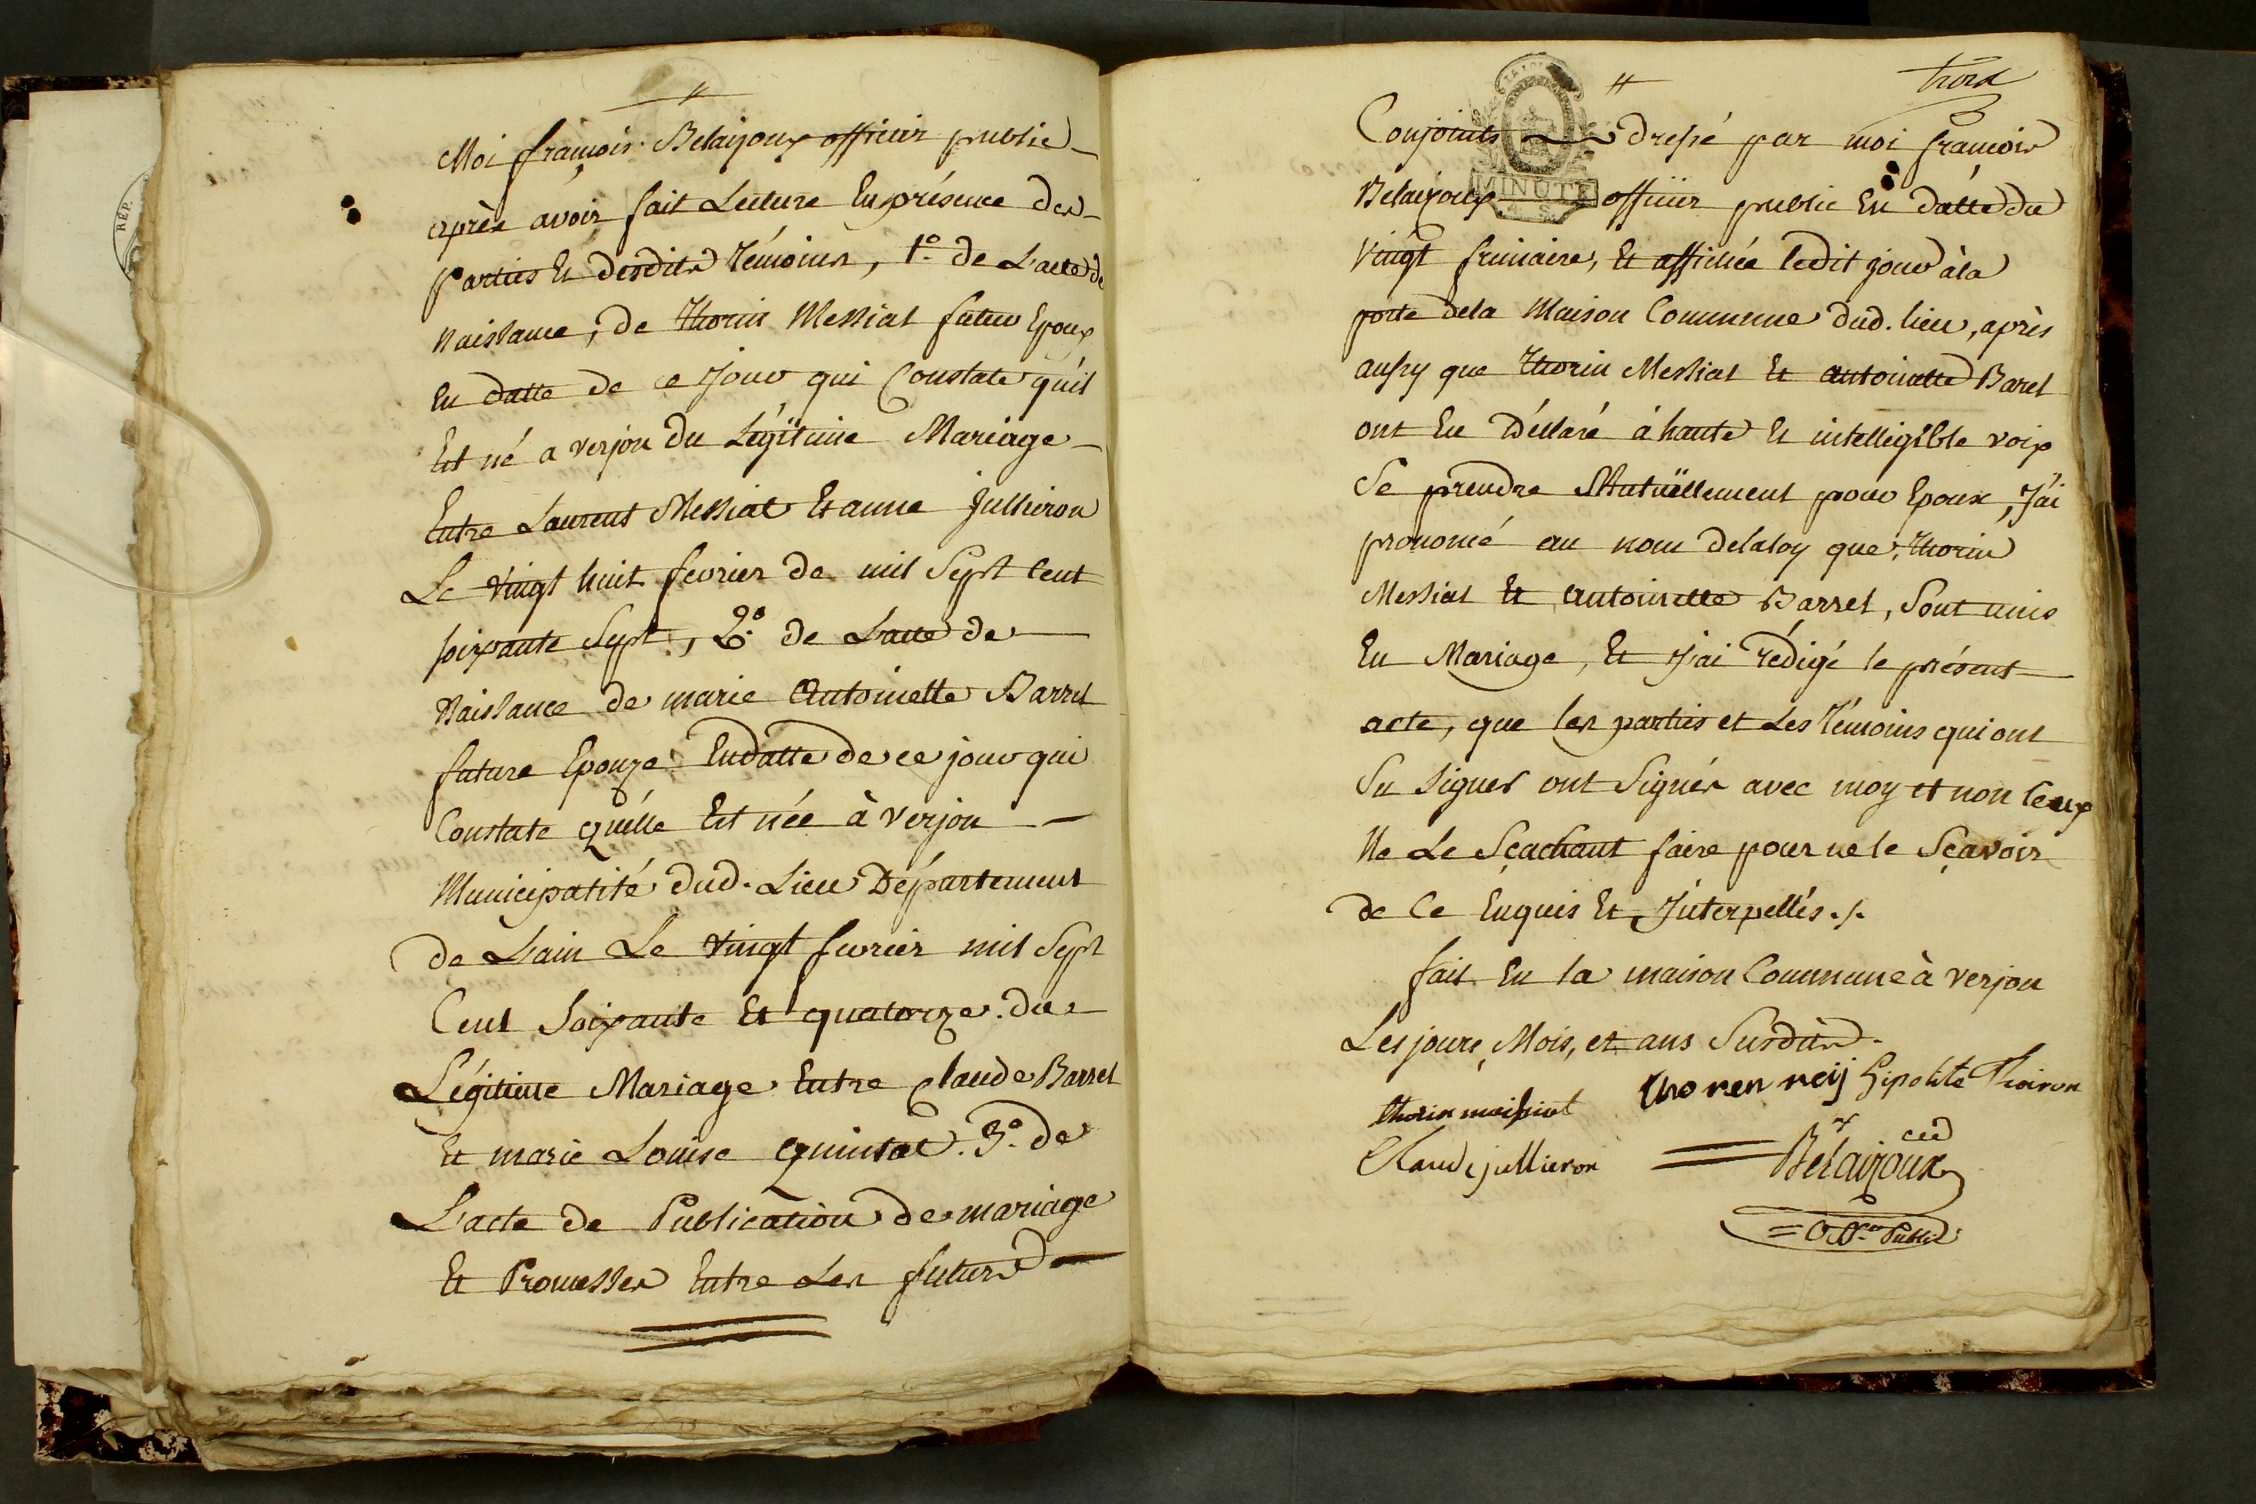 Moi françois Belaijoux officier public
après avoir fait Lecture En présence des
parties Et desdits Témoins, 1.º de L'acte de
Naissance, de Thorin Messiat futur Epoux
En datte de ce Jour qui Constate qu'il
Est né a verjon du Légitime Mariage
Entre Laurent Messiat Et anne Jullieron
Le vingt huit fevrier de mil Sept Cent
soixante Sept, 2.º de L'acte de
Naissance de marie Antoinette Barret
future Epouze En datte de ce jour qui
Constate qu'elle Est née à verjon
Municipalité dud. Lieu Département
de L'ain Le vingt fevrier mil Sept
Cent Soixante Et quatorze. du
Légitime Mariage Entre Claude Barret
Et marie Louise Quinsat. 3.º de
L'acte de Publication de mariage
Et Promesses Entre Les futurs
trois
Conjoints dressé par moi françois
MINUTE
Belaijoux officier public En datte du
vingt frimaire, Et affichée ledit jour à la
porte dela Maison Commune dud. lieu, après
aussy que Thorin Messiat Et antoinette Baret
ont Eu Déclaré à haute Et intelligible voix
Se prendre Mutuëllement pour Epoux, J'ai
prononcé au nom delaloy que Thorin
Messiat Et Antoinette Barret, Sont unis
En Mariage, Et J'ai rédigé le présent
acte, que les parties et Les Témoins qui ont
Su signer ont Signés avec moy et non Ceux
Ne Le Sçachant faire pour ne le Sçavoir
de Ce Enquis Et Interpellés ./.
fait En la maison Commune à verjon
Les jours, Mois, et ans Susdits.
thorin meissiat thoren reij hipolite Thoiron
Claude jullieron Belaijoux
Offer Public
RÉP.